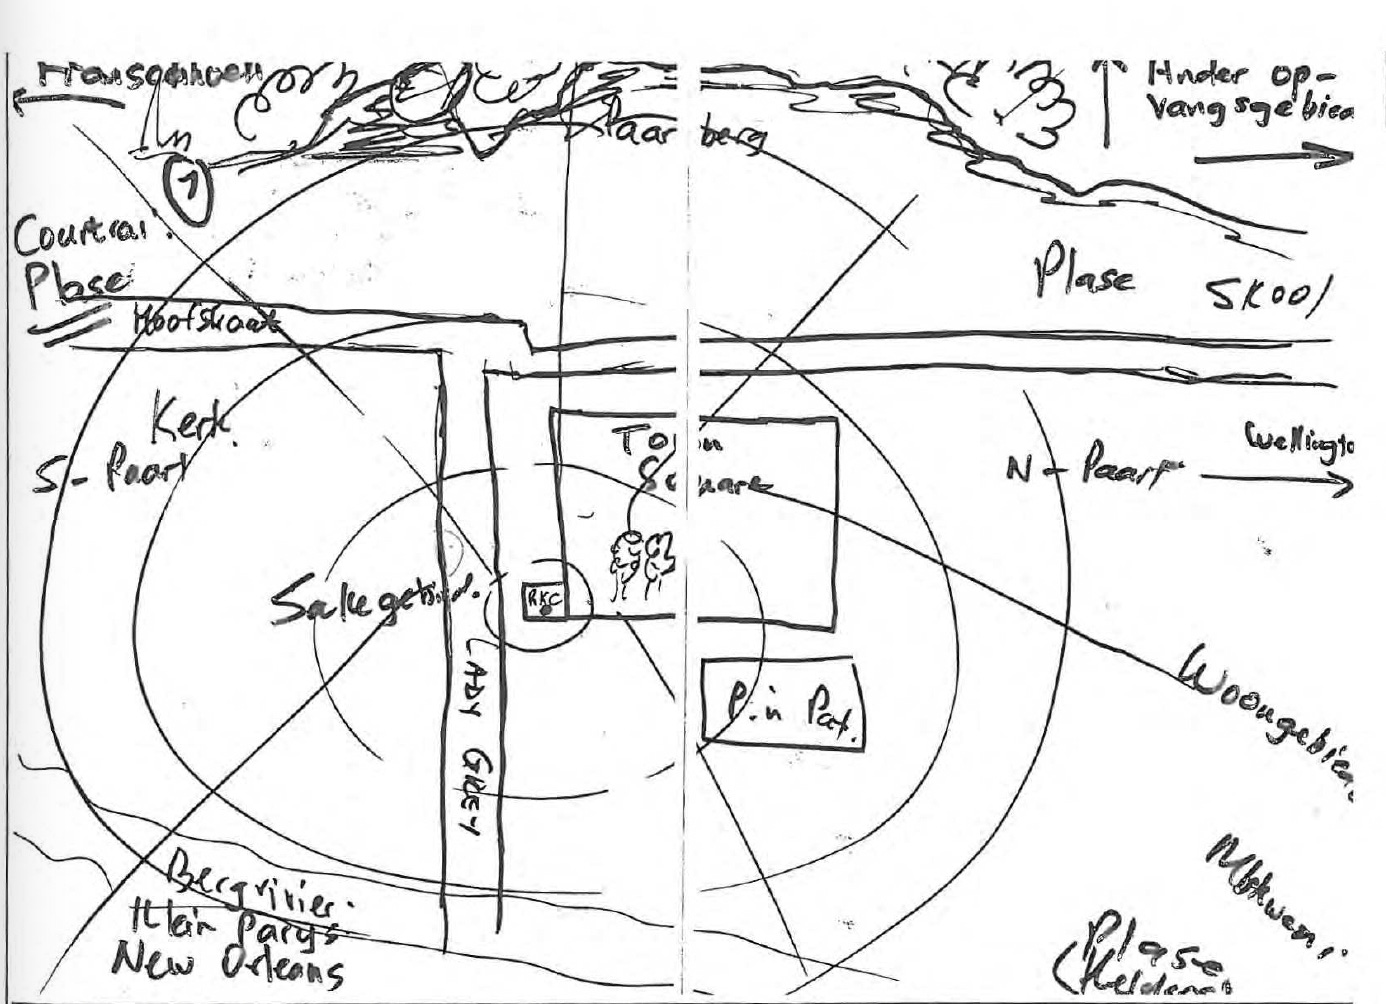 Fransghhoek
Ander op-
vangsgebied
Paar berg
1
Courtrai
Plase
Hoofstraat
Plase
SKOOl
Kerk.
S-Paarl
Town
Square
N-Paarl
Wellingto
Sakegebied.
RKC
LADY GREY
P.ick Pat.
Woongebied
Bergrivier.
Klein Parys
New Orleans
Mbekweni
Plase